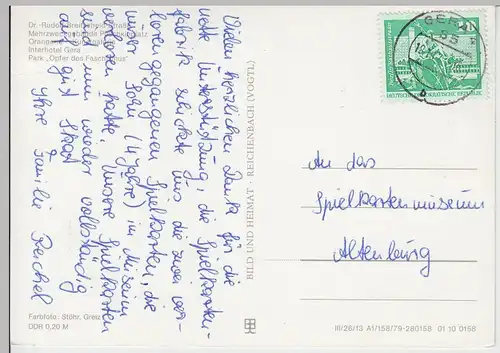 Dr.-Rudolf-Breitscheid-Straße
Mehrzweckgebäude
Interhotel Gera
Park „Opfer des Faschismus“
Vielen herzlichen Dank für die
nette Unterstützung, die Spielkarten-
fabrik schickte uns die zwei ver-
lorengegangenen Spielkarten, die
unser Sohn (4 Jahre) im Museum
verloren hatte. Unsere Spielkarten
sind nun wieder vollständig
und gut
Ihre Familie Reichel
Farbfoto: Stöhr, Greiz
DDR 0,20 M
BILD UND HEIMAT · REICHENBACH (VOGTL)
GERA
DEUTSCHE DEMOKRATISCHE REPUBLIK
An das
Spielkartenmuseum
Altenburg
III/26/13 A1/158/79-280158 01 10 0158